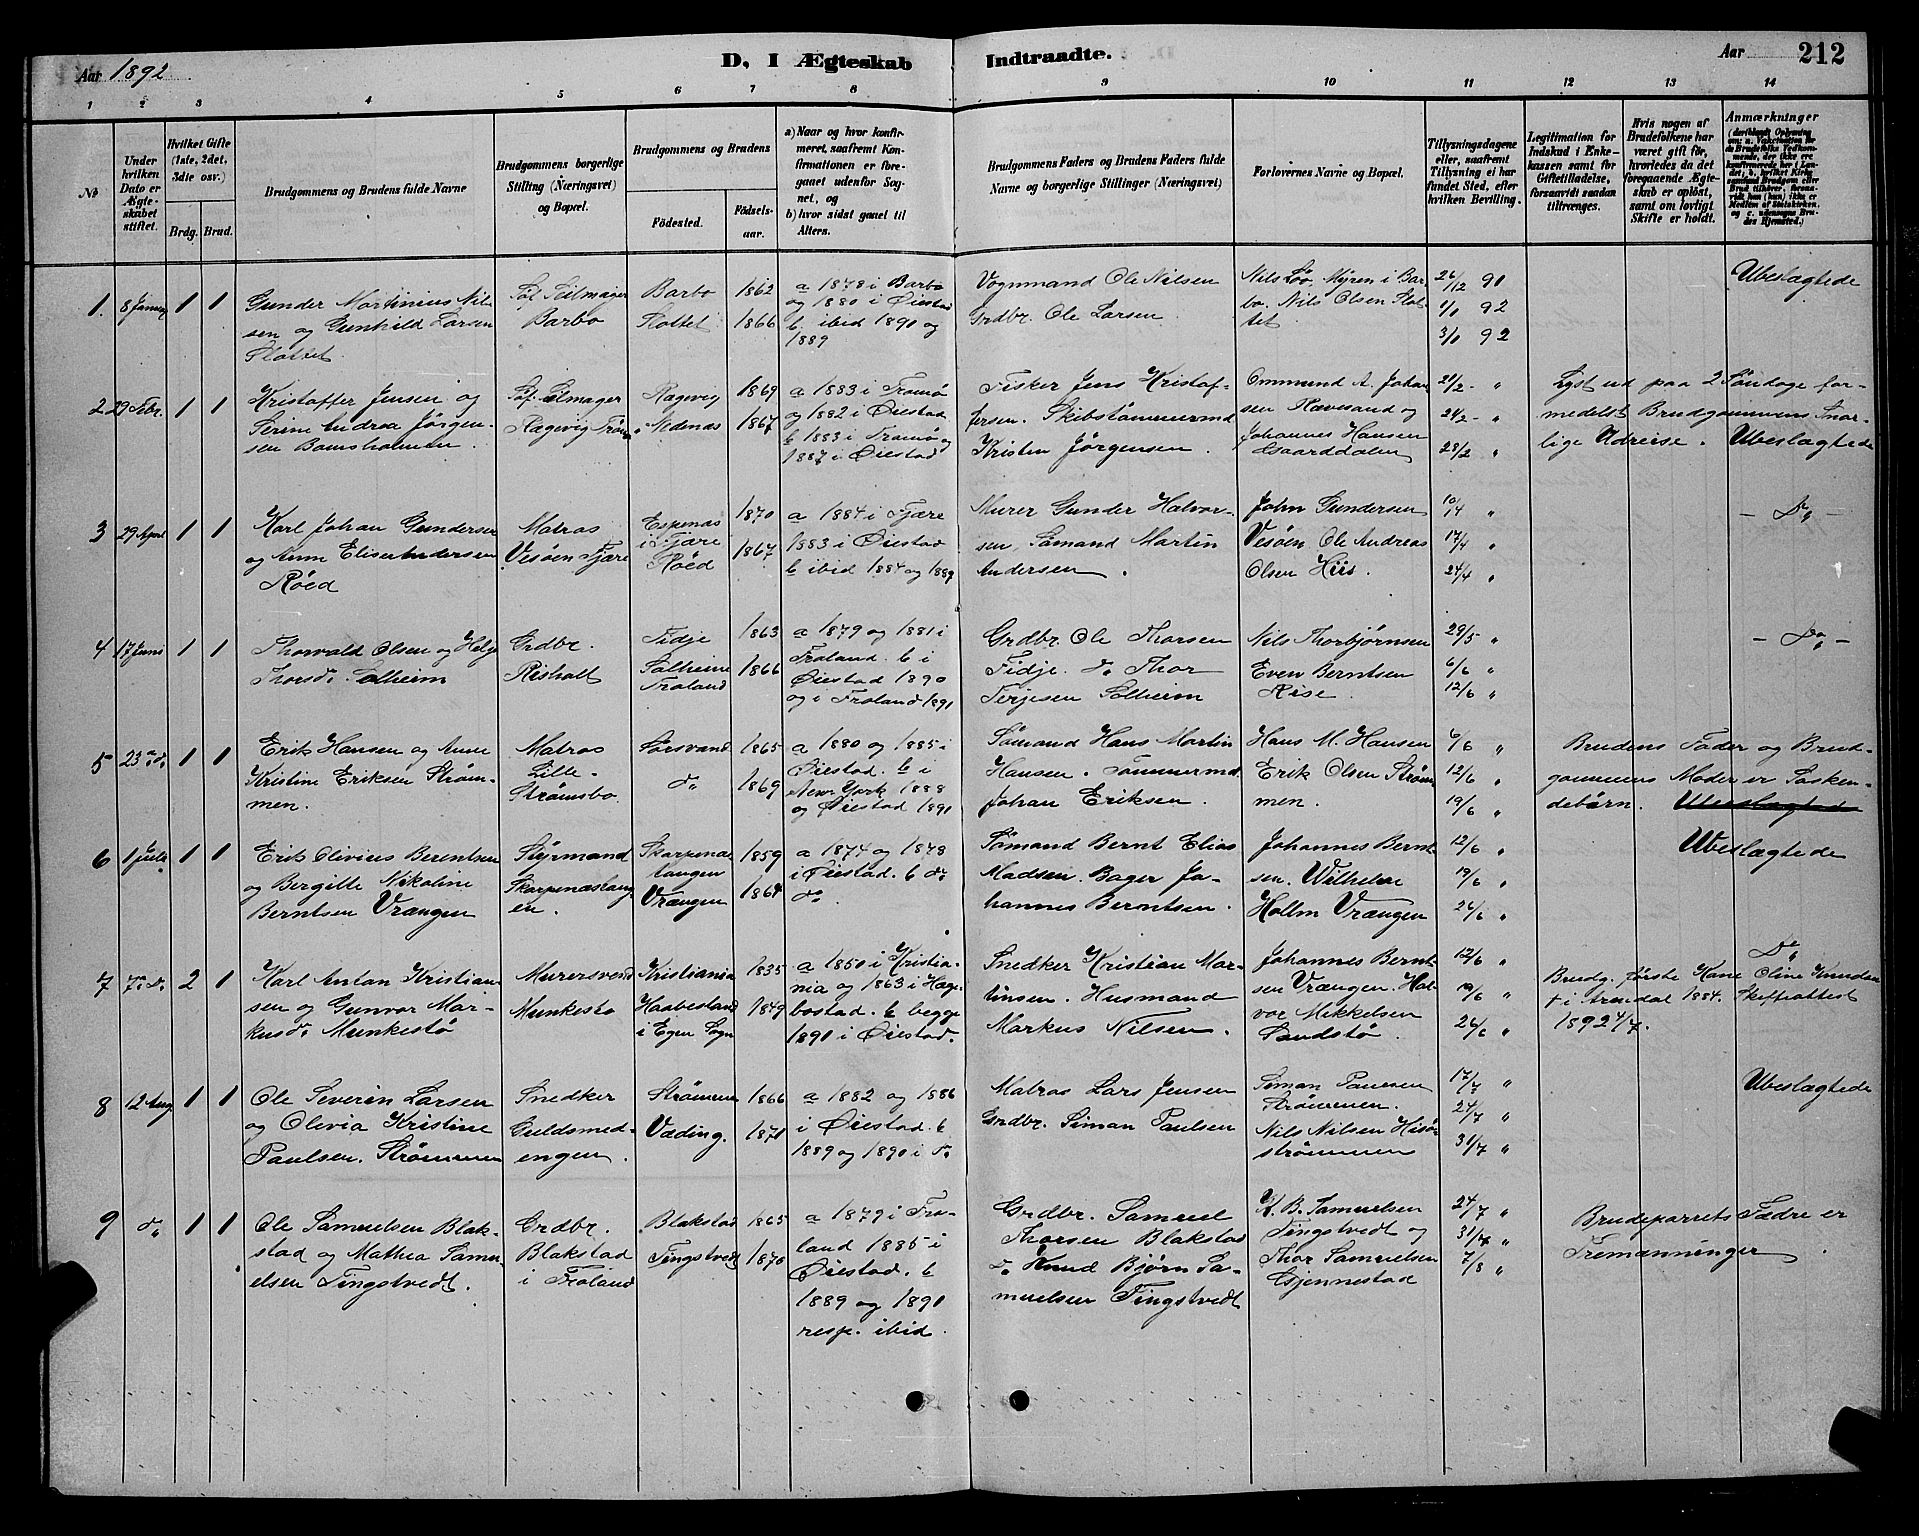 Aar 1892
D, I Ægteskab Indtraadte.
Aar 212
1 2 3 4 5 6 7 8 9 10 11 12 13 14
No
Under hvilken Dato er Ægteskabet stiftet.
Hvilket Gifte (1ste, 2det, 3die osv.)
Brdg. Brud.
Brudgommens og Brudens fulde Navne
Brudgommens borgerlige Stilling (Næringsvei) og Bopæl.
Brudgommens og Brudens
Fødested. Fødsels-aar.
a) Naar og hvor konfirmeret, saafremt Konfirmationen er foregaaet udenfor Sognet, og
b) hvor sidst gaaet til Alters.
Brudgommens Faders og Brudens Faders fulde Navne og borgerlige Stillinger (Næringsvei)
Forlovernes Navne og Bopæl.
Tillysningsdagene eller, saafremt Tillysning ei har fundet Sted, efter hvilken Bevilling.
Legitimation for Indskud i Enkekassen samt for Giftetilladelse, forsaavidt saadan tiltrænges.
Hvis nogen af Brudefolkene har været gift før, hvorledes da det foregaaende Ægteskab er opløst, samt om lovligt Skifte er holdt.
Anmærkninger
1. 8 Januar 1 1
Gunder Martinius Nil-
sen og Gunhild Larsen
Slottet.
Søf. Seilmager
Barbo
Barbo 1862
Slottet 1866
a 1878 i Barbo
og 1880 i Øiestad
b ibid 1890 og
1889
Vognmand Ole Nilsen
Grdbr. Ole Larsen
Nils Løv. Myren i Bar-
bo. Nils Olsen Slot-
tet.
26/12 91
1/1 92
3/1 92
Ubeslægtede
2 29 Febr. 1 1
Kristoffer Jensen og
Serine Andrea Jørgen-
sen Bomsholmen
Søf. Seilmager
Ragevig Tromø
Ragevig 1869
Nedenæs 1867
a 1883 i Tromø
og 1882 i Øiestad
b 1883 i Tromø og
1887 i Øiestad
Fisker Jens Kristof-
fersen. Skibstømmermd
Kristen Jørgensen.
Ommund A. Johan
sen Havesand og
Johannes Hansen
Gaarddalen
21/2 "
24/2 "
28/2 "
Lyst ud paa 2 Søndage for-
medelst Brudgommens snar-
lige Udreise. Ubeslægtede
3 29 April 1 1
Karl Johan Gundersen
og Anne Elise Andersen
Røed
Matros
Vesøen Fjære
Espenæs
i Fjære
Røed
1870
1867
a 1884 i Fjære
1883 i Øiestad
b ibid 1884 og 1889
Murer Gunder Halvor-
sen, Sømand Martin
Andersen.
John Gundersen
Vesøen Ole Andreas
Olsen Hiis.
10/4 "
17/4 "
24/4 "
- Do -
4 17 Juni 1 1
Thorvald Olsen og Helge
Thorsd. Solheim
Grdbr.
Risholt
Fidje 1863
Solheim 1866
Froland
a 1879 og 1881 i
Froland. b i
Øiestad 1890
og i Froland 1891
Grdbr. Ole Thorsen
Fidje. do Thor
Terjesen Solheim
Nils Thorbjørnsen
Even Berntsen
Rise.
29/5 "
6/6 "
12/6 "
- Do -
5 23 do 1 1
Erik Hansen og Anne
Kristine Eriksen Strøm-
men.
Matros
Lille-
Strømsbo.
Sørsvand 1865
do 1869
a 1880 og 1885 i
Øiestad. b i
New York 1888
og Øiestad 1891
Sømand Hans Martin
Hansen. Tømmermd
Johan Eriksen.
Hans M. Hansen
Erik Olsen Strøm
men.
6/6 "
12/6 "
19/6 "
Brudens Fader og Brud-
gommens Moder er Søsken-
debørn. Ubeslægtede
6 1 Juli 1 1
Erik Olivius Berentsen
og Bergitte Nikoline
Berntsen Vrængen
Styrmand
Skarpenæstang
en.
Skarpenæs
tangen
Vrængen
1859
1864
a 1874 og 1878
i Øiestad. b do
do
Sømand Bernt Elias
Madsen. Bager Jo-
hannes Berntsen.
Johannes Bernt
sen. Wilhelm
Hollm Vrængen
12/6 "
19/6 "
26/6 "
Ubeslægtede
7 7 do 2 1
Karl Anton Kristian-
sen og Gunvor Mar-
kusd. Munkestø
Murersvend
Munkestø
Kristiania 1835
Haabestand 1849
i Egen Sogn
a 1850 i Kristia-
nia og 1863 i Hæge-
bostad. b begge
1890 i Øiestad.
Snedker Kristian Mar-
tinsen. Husmand
Markus Nilsen.
Johannes Bernt
sen Vrængen. Hal-
vor Mikkelsen
Sandstø.
12/6 "
19/6 "
26/6 "
Do
Brudg. første Kone Oline Knudsen
† i Arendal 1884. Skifteattest
1892 4/7.
8 12 Aug. 1 1
Ole Severin Larsen
og Olivia Kristine
Paulsen. Strømmen
Snedker
Guldsmed-
engen.
Strømmen 1866
Væding. 1871
a 1882 og 1886
i Øiestad. b
1889 og 1890 i do
Matros Lars Jensen
Grdbr. Siman Paulsen
Siman Paulsen
Strømmen.
Nils Nilsen Hisø-
strømmen
17/7 "
24/7 "
31/7 "
Ubeslægtede
9 do 1 1
Ole Samuelsen Blak-
stad og Mathea Samu-
elsen Tingstvedt.
Grdbr.
Blakstad
i Froland
Blakstad 1865
Tingstvedt 1870
a 1879 i Fro-
land 1885 i
Øiestad. b
1889 og 1890
resp. ibid.
Grdbr. Samuel
Thorsen Blakstad
do Knud Bjørn Sa-
muelsen Tingstvedt
K. B. Samuelsen
Tingstvedt og
Thor Samuelsen
Gjennestad
24/7 "
31/7 "
7/8 "
Brudeparrets Fædre er
Tremænninger.